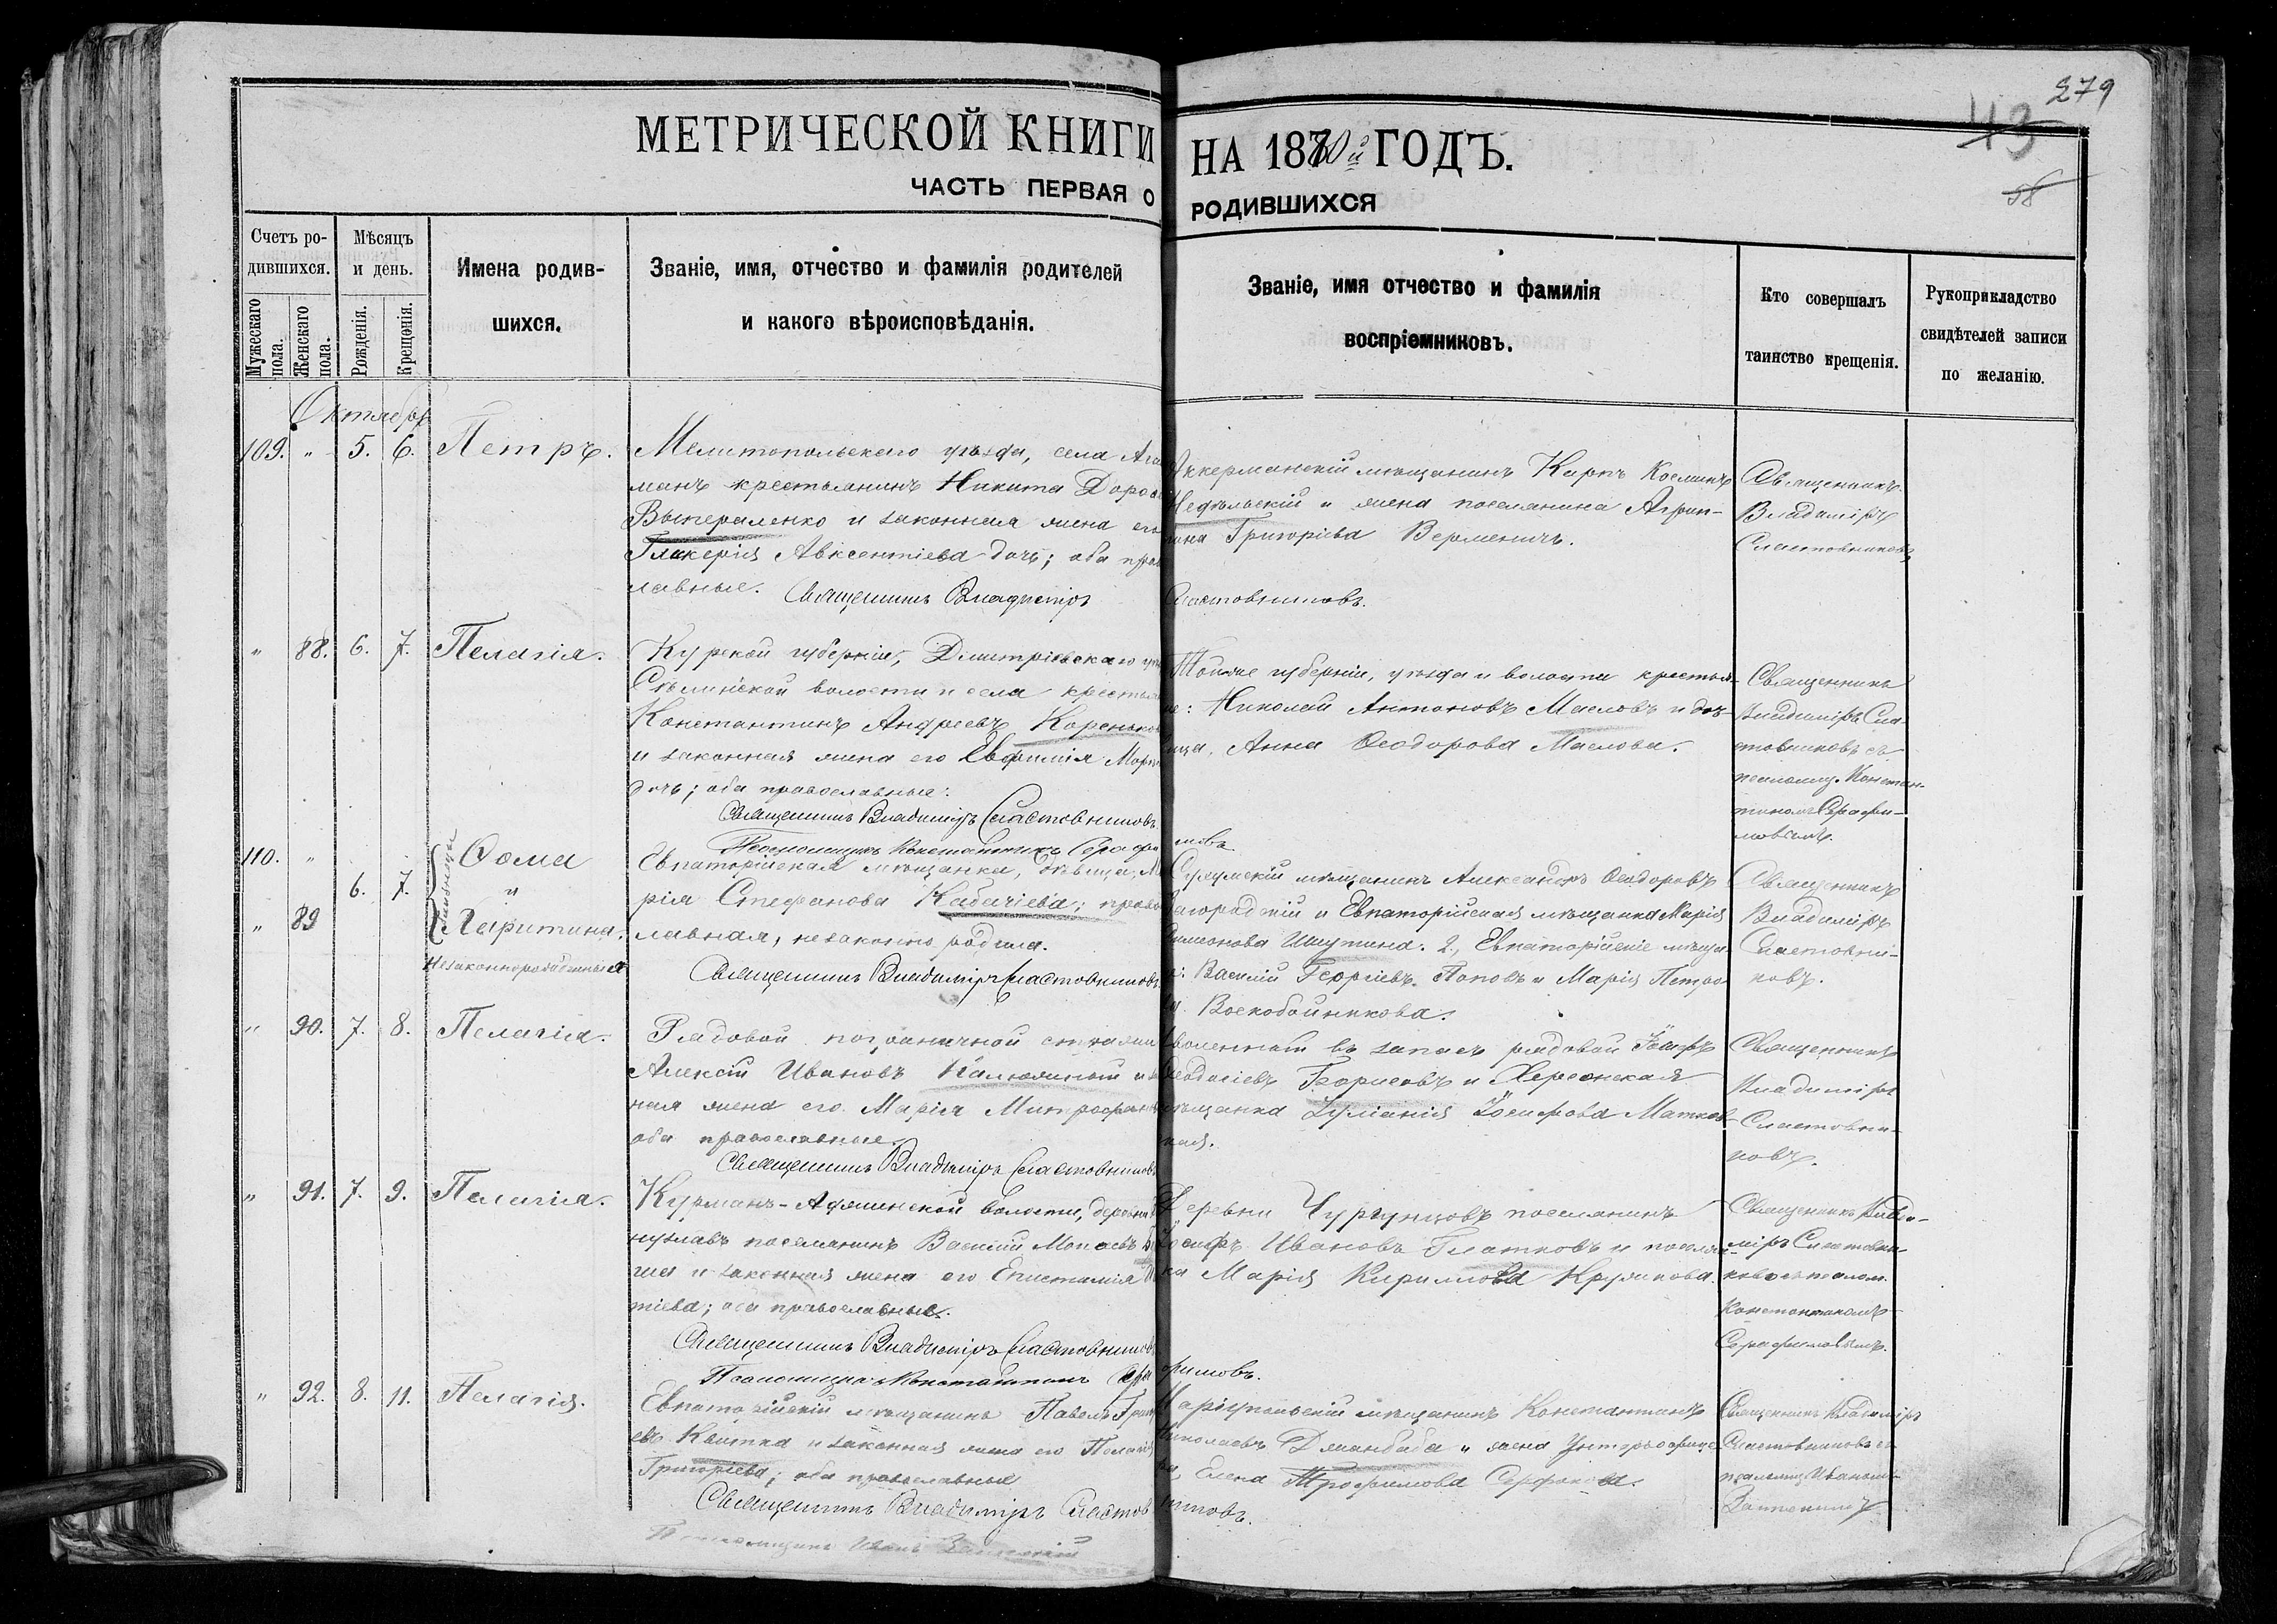 279
43
58
МЕТРИЧЕСКОЙ КНИГИ НА 18 й ГОДЪ.
ЧАСТЬ ПЕРВАЯ О РОДИВШИХСЯ
Счетъ ро-
дившихся.
Мужескаго пола.
Женскаго пола.
Мѣсяцъ
и день.
Рожденія.
Крещенія.
Имена родив-
шихся.
Званіе, имя, отчество и фамилія родителей
и какого вѣроисповѣданія.
Званіе, имя отчество и фамилія
воспріемниковъ.
Кто совершалъ
таинство крещенія.
Рукоприкладство
свидѣтелей записи
по желанію.
Октябрь
109. " 5. 6. Петръ.
Мелитопольскаго уѣзда, села Ага
манъ крестьянинъ Никита
и законная жена его
Гликерія Авксентіева дочь; оба прав
лавные.
Священникъ Владиміръ Сластовниковъ.
Аккерманскій мѣщанинъ Карпъ Косминъ
и жена поселянина Агрип-
пина Григорьева Верменичъ.
Священникъ
Владиміръ
Сластовниковъ
" 88. 6. 7. Пелагія.
Курской губерніи, Дмитріевскаго
волости и села
Константинъ Андреевъ Кореньков
и законная жена его Евфимія
дочь; оба православные.
Священникъ Владиміръ Сластовниковъ.
Псаломщикъ Константинъ Серафимовъ.
Той же губерніи, уѣзда и волости крестья-
не: Николай Антоновъ Масловъ и дѣв-
ица, Анна Ѳеодорова Маслова.
Священникъ
Владиміръ Сла-
стовниковъ съ
псаломщ. Констан-
тиномъ Серафи-
мовымъ.
110. "
" 89
6. 7.
близнецы
Ѳома
и
Харитина.
Незаконнорожденные
Евпаторійская мѣщанка, дѣвица, Ма
рія Стефанова Кабачіева; право
лавная, незаконно родила.
Священникъ Владиміръ Сластовниковъ.
мѣщанинъ Александръ Ѳеодоровъ
и Евпаторійская мѣщанка Марія
Симеонова Ишутина. 2., Евпаторійскіе мѣща-
не: Василій Георгіевъ Поповъ и Марія Петро-
ва Воскобойникова.
Священникъ
Владиміръ
Сластовни-
ковъ.
" 90. 7. 8. Пелагія.
Рядовой пограничной стражи
Алексій Ивановъ Калюжный и
ная жена его Марія Митрофан
оба православные.
Священникъ Владиміръ Сластовниковъ
Уволенный въ запасъ рядовой Іосифъ
Ѳеодосіевъ и Херсонская
мѣщанка Іуліанія Іосифова Матков-
ская.
Священникъ
Владиміръ
Сластовни-
ковъ.
" 91. 7. 9. Пелагія.
Курманъ-Аджинской волости, деревни
поселянинъ Василій
и законная жена его Епистимія
тіева; оба православные.
Священникъ Владиміръ Сластовниковъ
Псаломщикъ Константинъ Серафимовъ.
Деревни поселянинъ
Іосифъ Ивановъ Платковъ и поселян-
ка Марія Кириллова Кружкова.
Священникъ Влади-
міръ Сластовни-
ковъ съ псалом.
Константиномъ
Серафимовымъ.
" 92. 8. 11. Пелагія.
Евпаторійскій мѣщанинъ Павелъ Григ
евъ Квитка и законная жена его Пелагія
Григоріева; оба православные
Священникъ Владиміръ Сластовниковъ.
Псаломщикъ Иванъ
Маріупольскій мѣщанинъ Константинъ
Николаевъ Джанбаба и жена Унтеръ-офице-
ра, Елена Трофимова
Священникъ Владиміръ
Сластовниковъ съ
псаломщ. Иваномъ